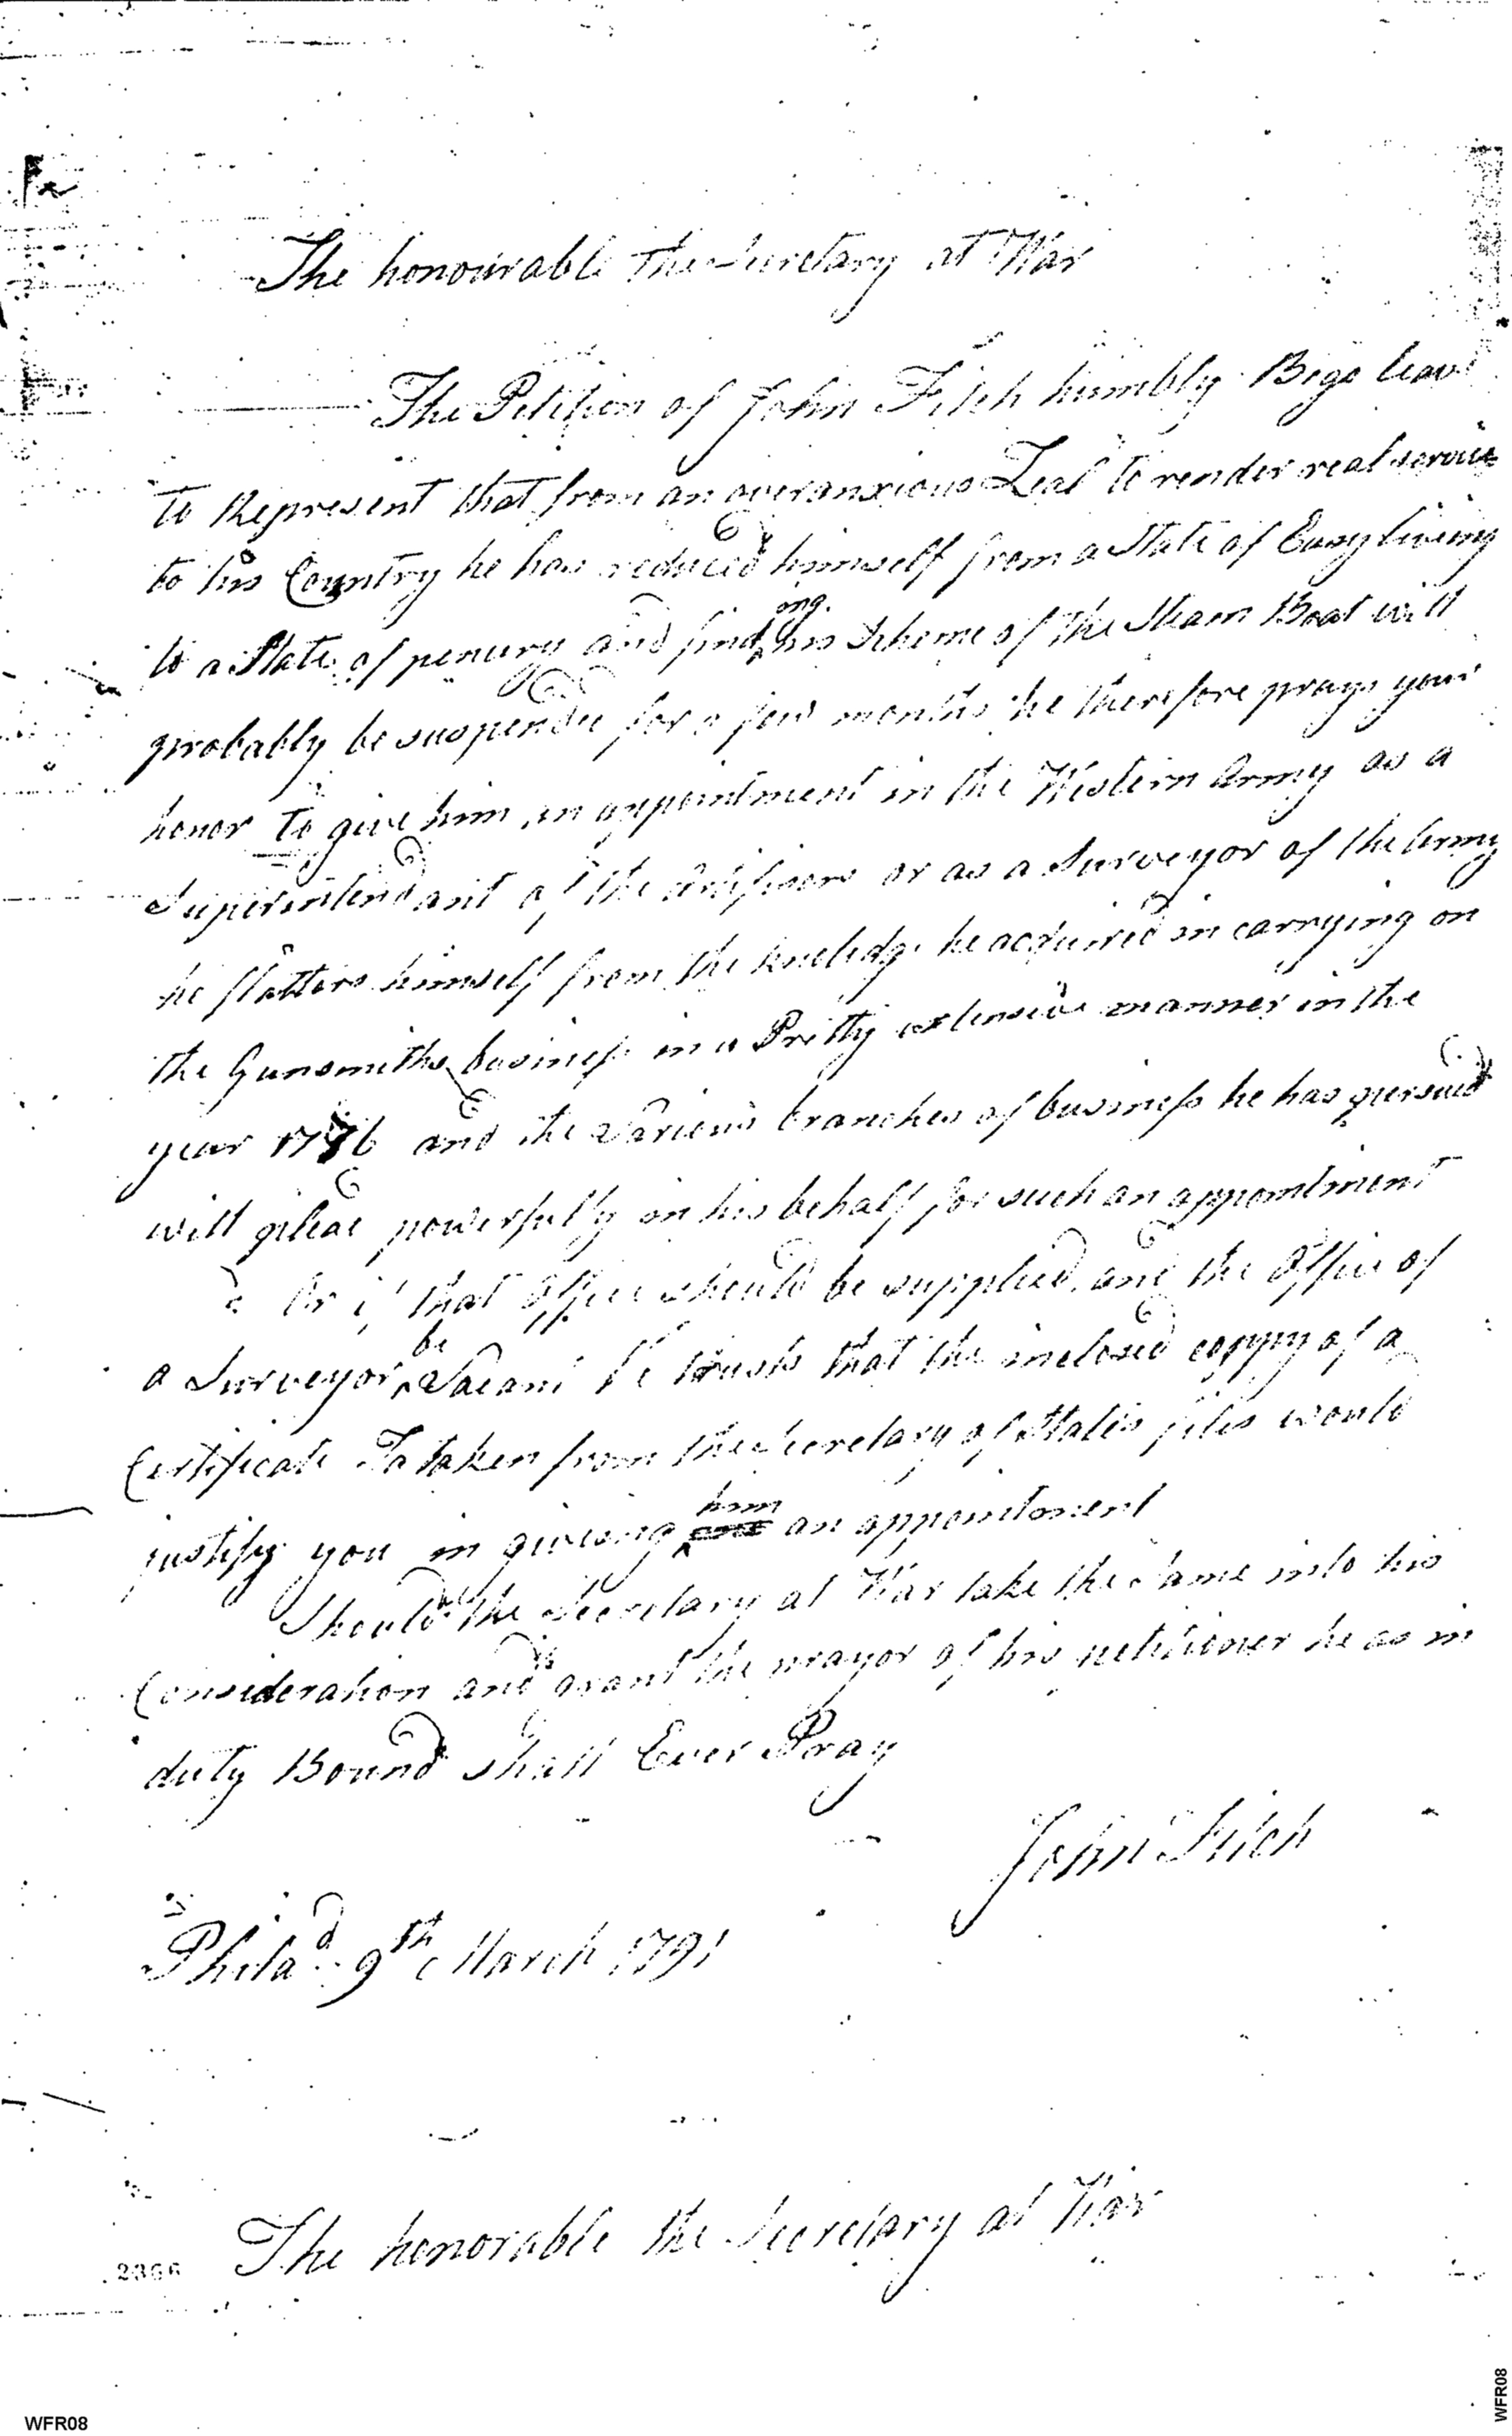 The honourable the Secretary at War
The Petition of John Fitch humbly Begs leave
to Represent that from an overanxious Zeal to render real service
to his Country he has reduced himself from a State of Easy living
to a State of penury and finding his Scheme of the Steam Boat will
probably be suspended for a few months he therefore prays your
honor to give him an appointment in the Western Army as a
Superintendant of the Artificers or as a Surveyor of the Army
he flatters himself from the knoledge he acquired in carrying on
the Gunsmiths business in a Pretty extensive manner in the
year 1776 and the Various branches of business he has pursued
will plead powerfully in his behalf for such an appointment
Or if that Office should be supplied and the Office of
a Surveyor be Vacant he trusts that the inclosed coppy of a
Certificate taken from the Secretary of States files would
justify you in giving him an appointment
Should the Secretary at War take the Same into his
Consideration and grant the prayor of his petitioner he as in
duty Bound shall Ever Pray
John Fitch
Philad. 9th March 1791
The honorable the Secretary at War
2366
WFR08
WFR08